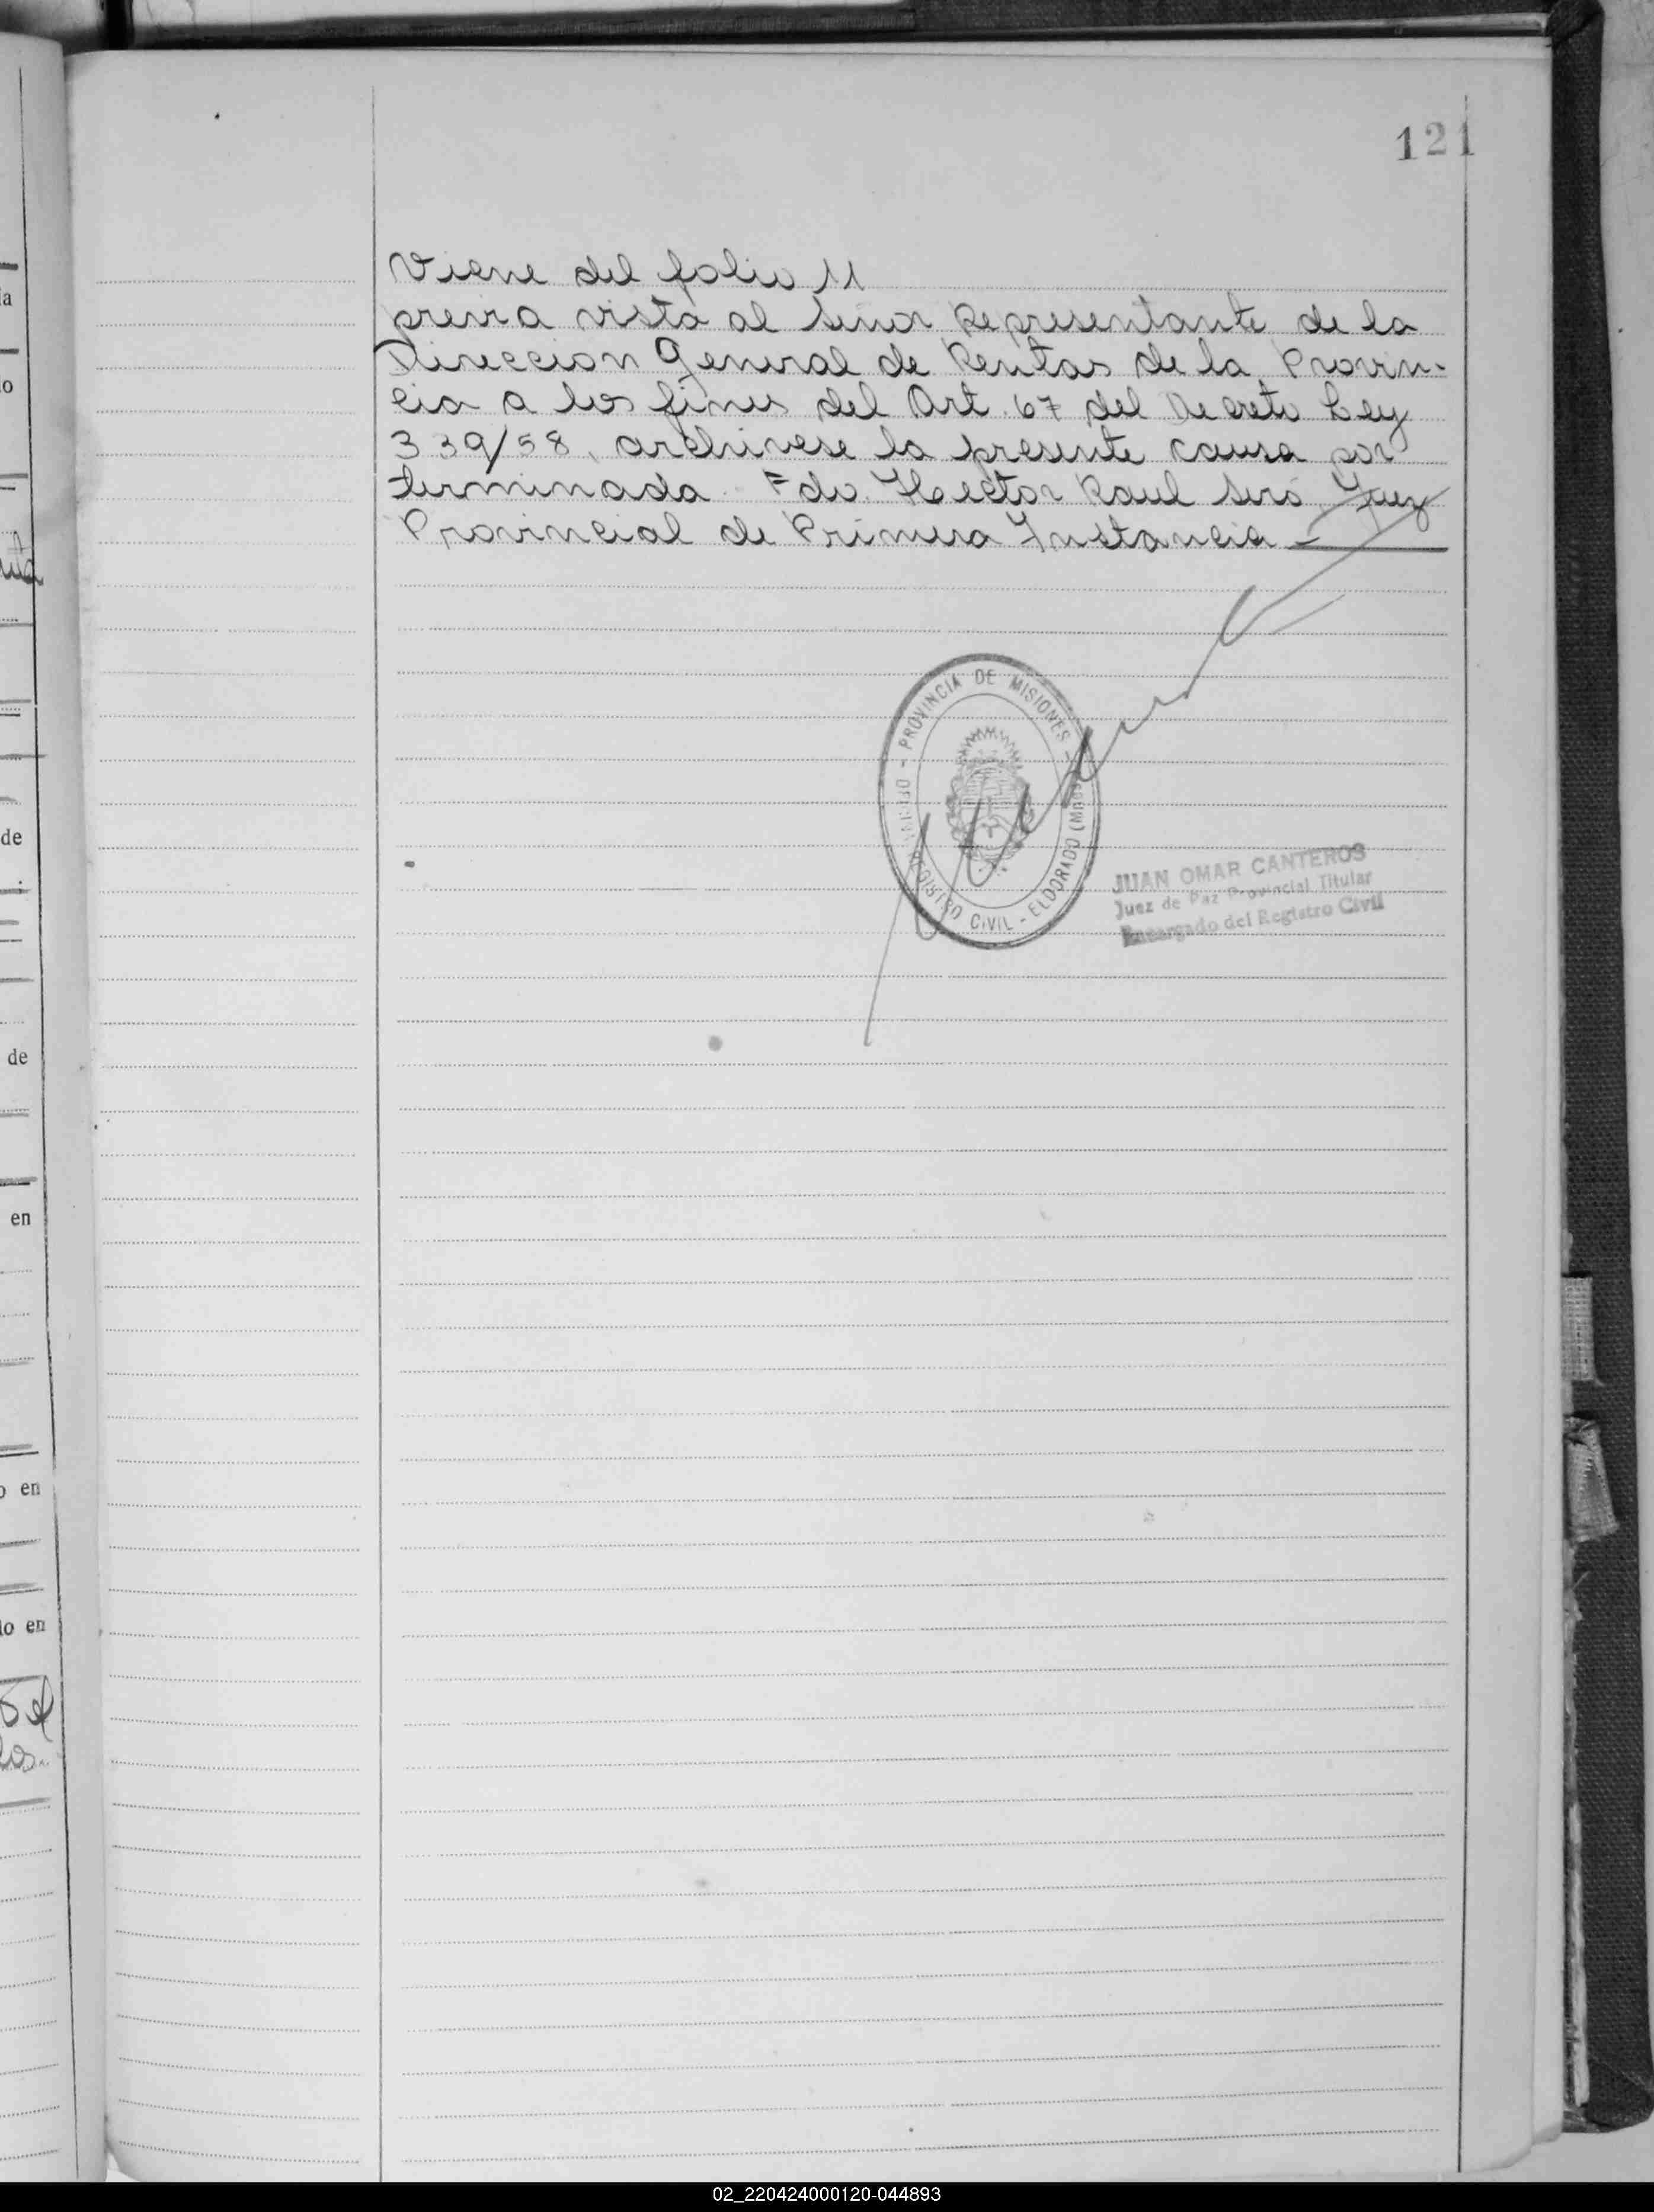 121
Viene del folio 11
previa vista al Señor Representante de la
Direccion General de Rentas de la Provin-
cia a los fines del Art. 67 del Decreto Ley
339/58, archivese la presente causa por
terminada. Fdo. Hector Raul Seró Juez
Provincial de Primera Instancia -
PROVINCIA DE MISIONES -
REGISTRO CIVIL - ELDORADO
JUAN OMAR CANTEROS
Juez de Paz Provincial Titular
Encargado del Registro Civil
la
lo
de
de
en
o en
lo en
02_220424000120-044893